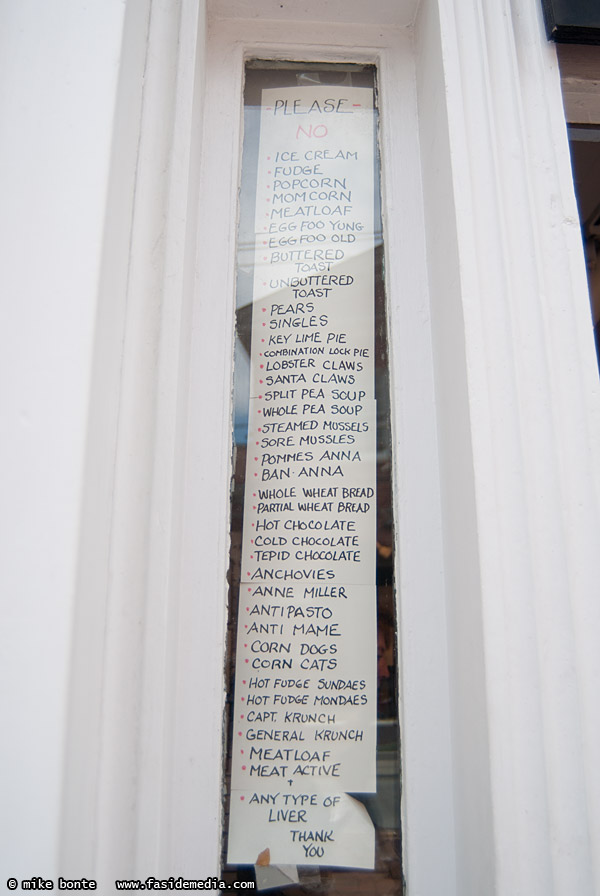 - PLEASE -
NO
• ICE CREAM
• FUDGE
• POPCORN
• MOMCORN
• MEATLOAF
• EGG FOO YUNG
• EGG FOO OLD
• BUTTERED
TOAST
• UNBUTTERED
TOAST
• PEARS
• SINGLES
• KEY LIME PIE
• COMBINATION LOCK PIE
• LOBSTER CLAWS
• SANTA CLAWS
• SPLIT PEA SOUP
• WHOLE PEA SOUP
• STEAMED MUSSELS
• SORE MUSSLES
• POMMES ANNA
• BAN-ANNA
• WHOLE WHEAT BREAD
• PARTIAL WHEAT BREAD
• HOT CHOCOLATE
• COLD CHOCOLATE
• TEPID CHOCOLATE
• ANCHOVIES
• ANNE MILLER
• ANTIPASTO
• ANTI MAME
• CORN DOGS
• CORN CATS
• HOT FUDGE SUNDAES
• HOT FUDGE MONDAES
• CAPT. KRUNCH
• GENERAL KRUNCH
• MEATLOAF
• MEAT ACTIVE
+
• ANY TYPE OF
LIVER
THANK
YOU
© mike bonte www.fasidemedia.com